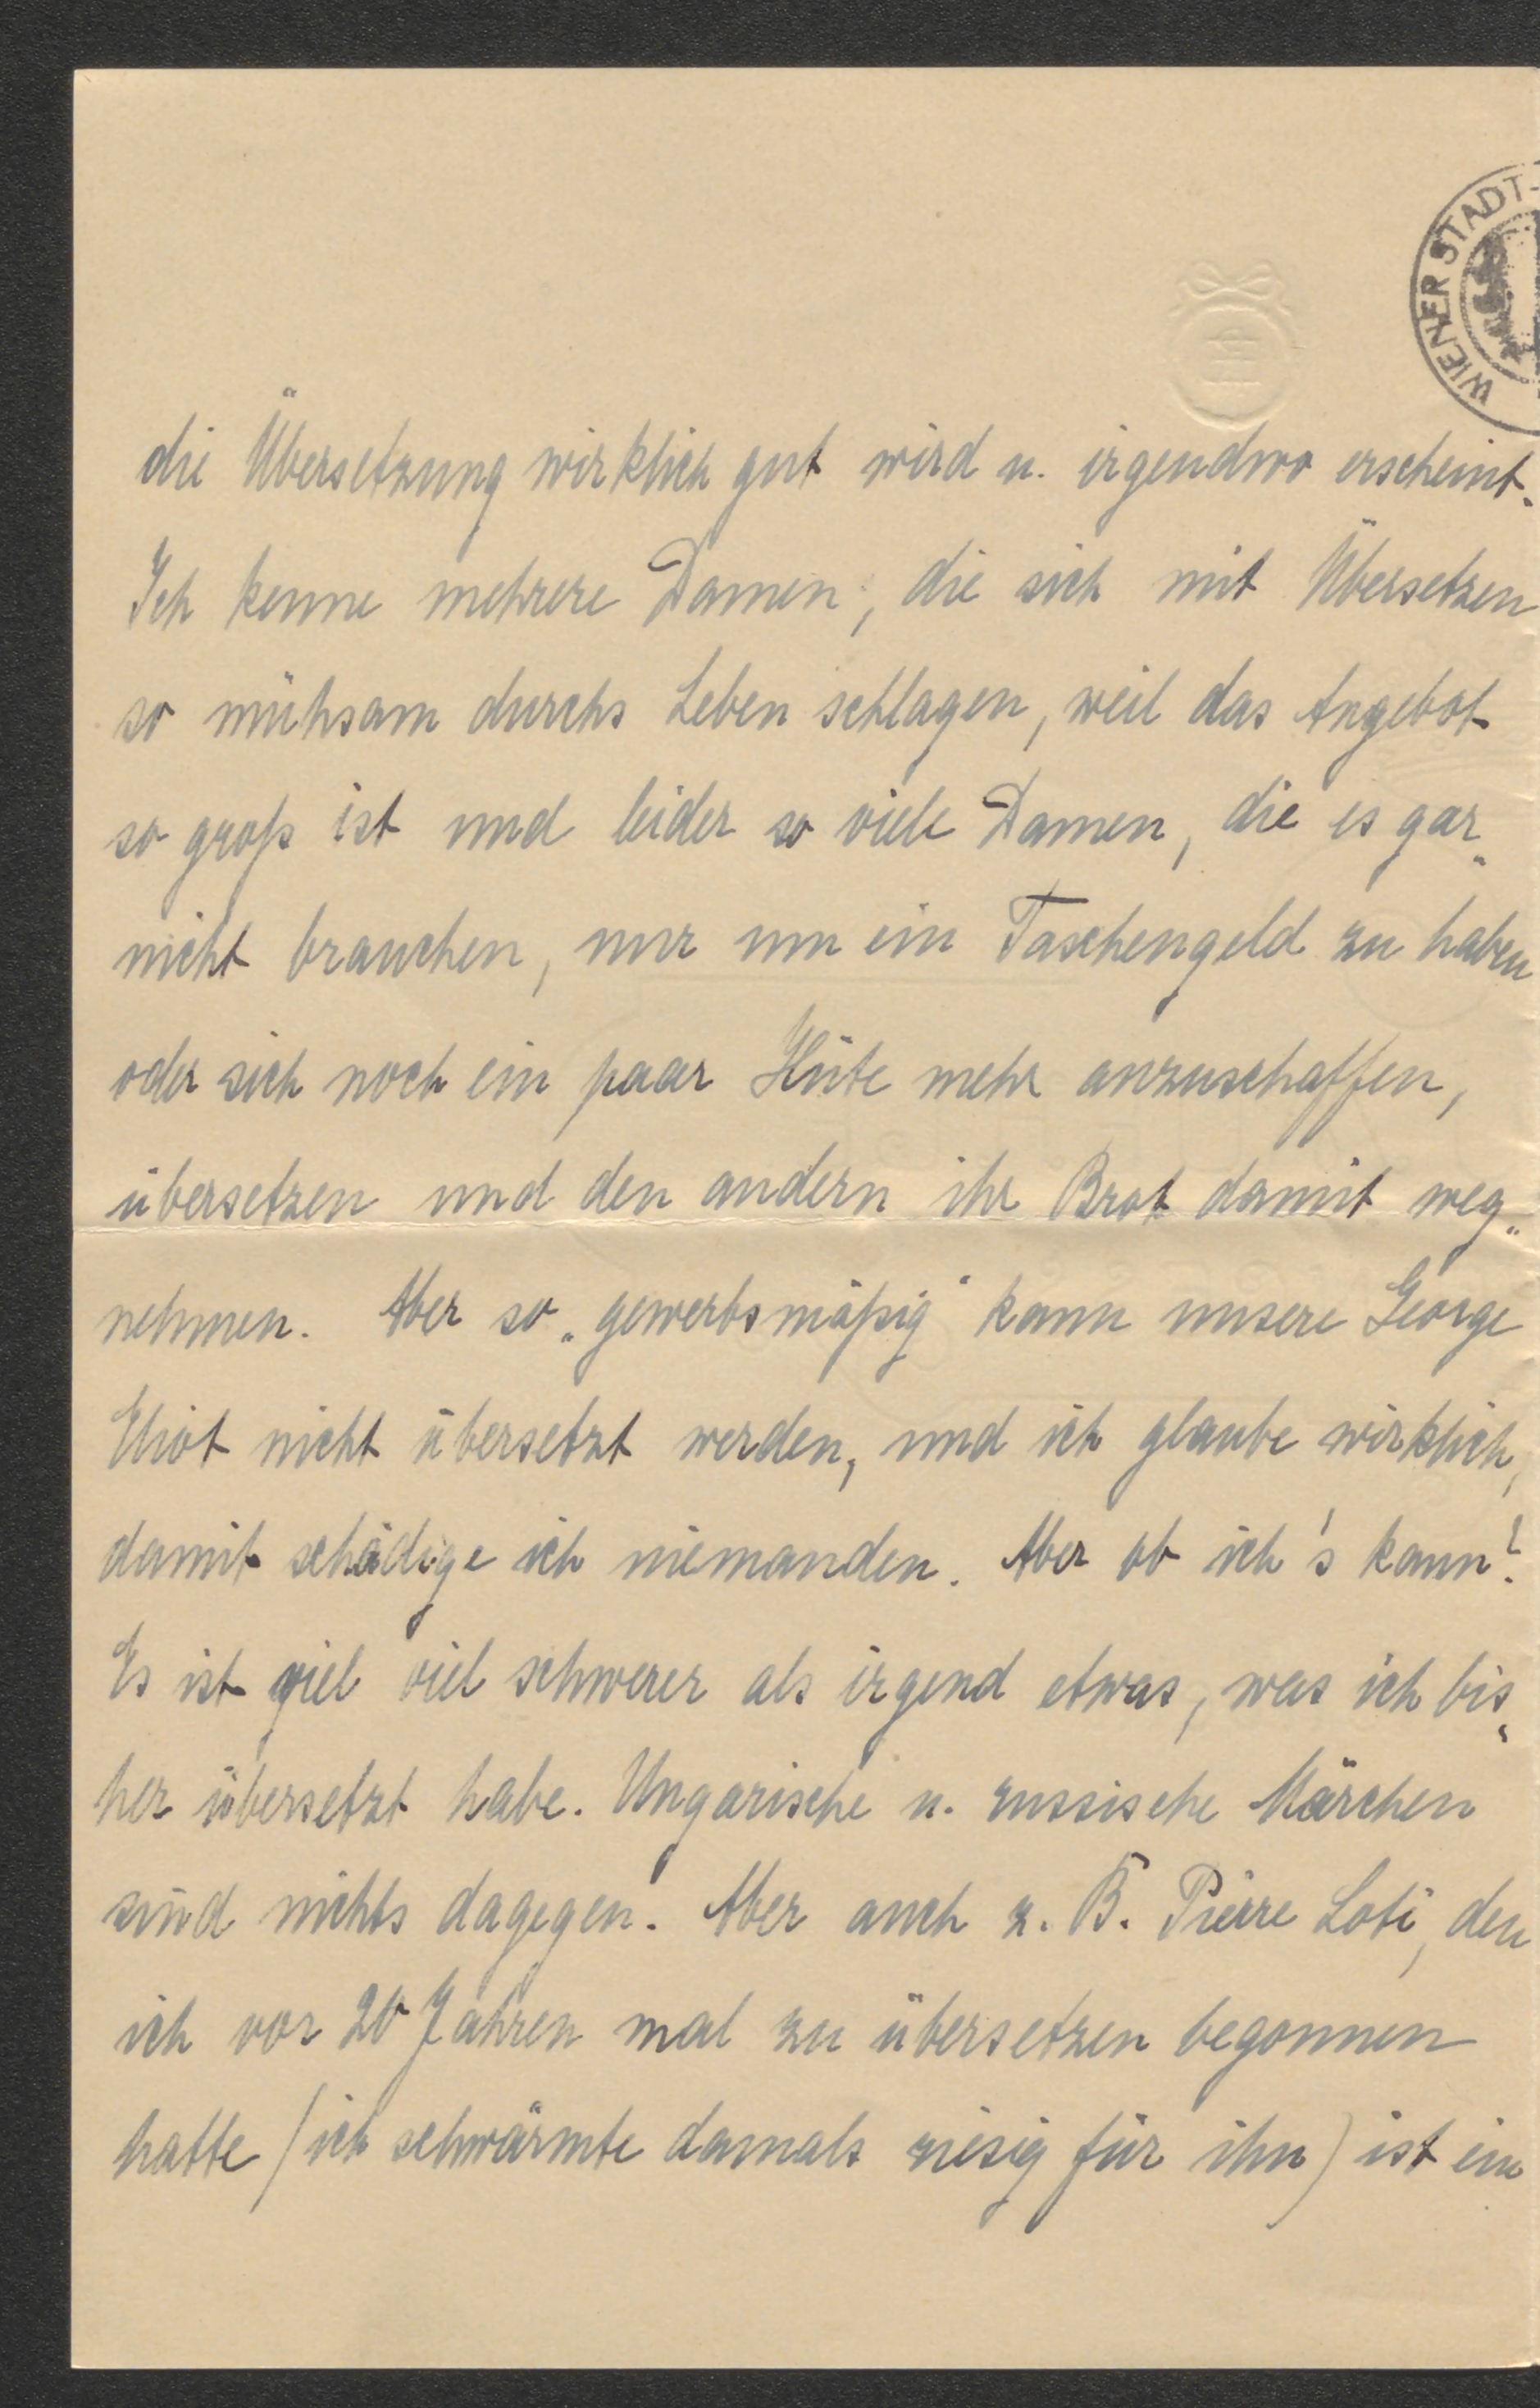 WIENER STADT-
die Übersetzung wirklich gut wird u. irgendwo erscheint.
Ich kenne mehrere Damen, die sich mit Übersetzen
so mühsam durchs Leben schlagen, weil das Angebot
so groß ist und leider so viele Damen, die es gar„
nicht brauchen, nur um ein Taschengeld zu haben
oder sich noch ein paar Hüte mehr anzuschaffen,
übersetzen und den andern ihr Brot damit weg„
nehmen. Aber so „gewerbsmäßig“ kann unsere George
Eliot nicht übersetzt werden, und ich glaube wirklich,
damit schädige ich niemanden. Aber ob ich's kann?
Es ist viel viel schwerer als irgend etwas, was ich bis„
her übersetzt habe. Ungarische u. russische Märchen
sind nichts dagegen. Aber auch z. B. Pierre Loti, den
ich vor 20 Jahren mal zu übersetzen begonnen
hatte (ich schwärmte damals riesig für ihn) ist ein